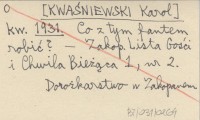 [KWAŚNIEWSKI Karol]
kw. 1931. Co z tym fantem
robić? — Zakop. Lista Gości
i Chwila Bieżąca 1, nr 2.
Dorożkarstwo w Zakopanem